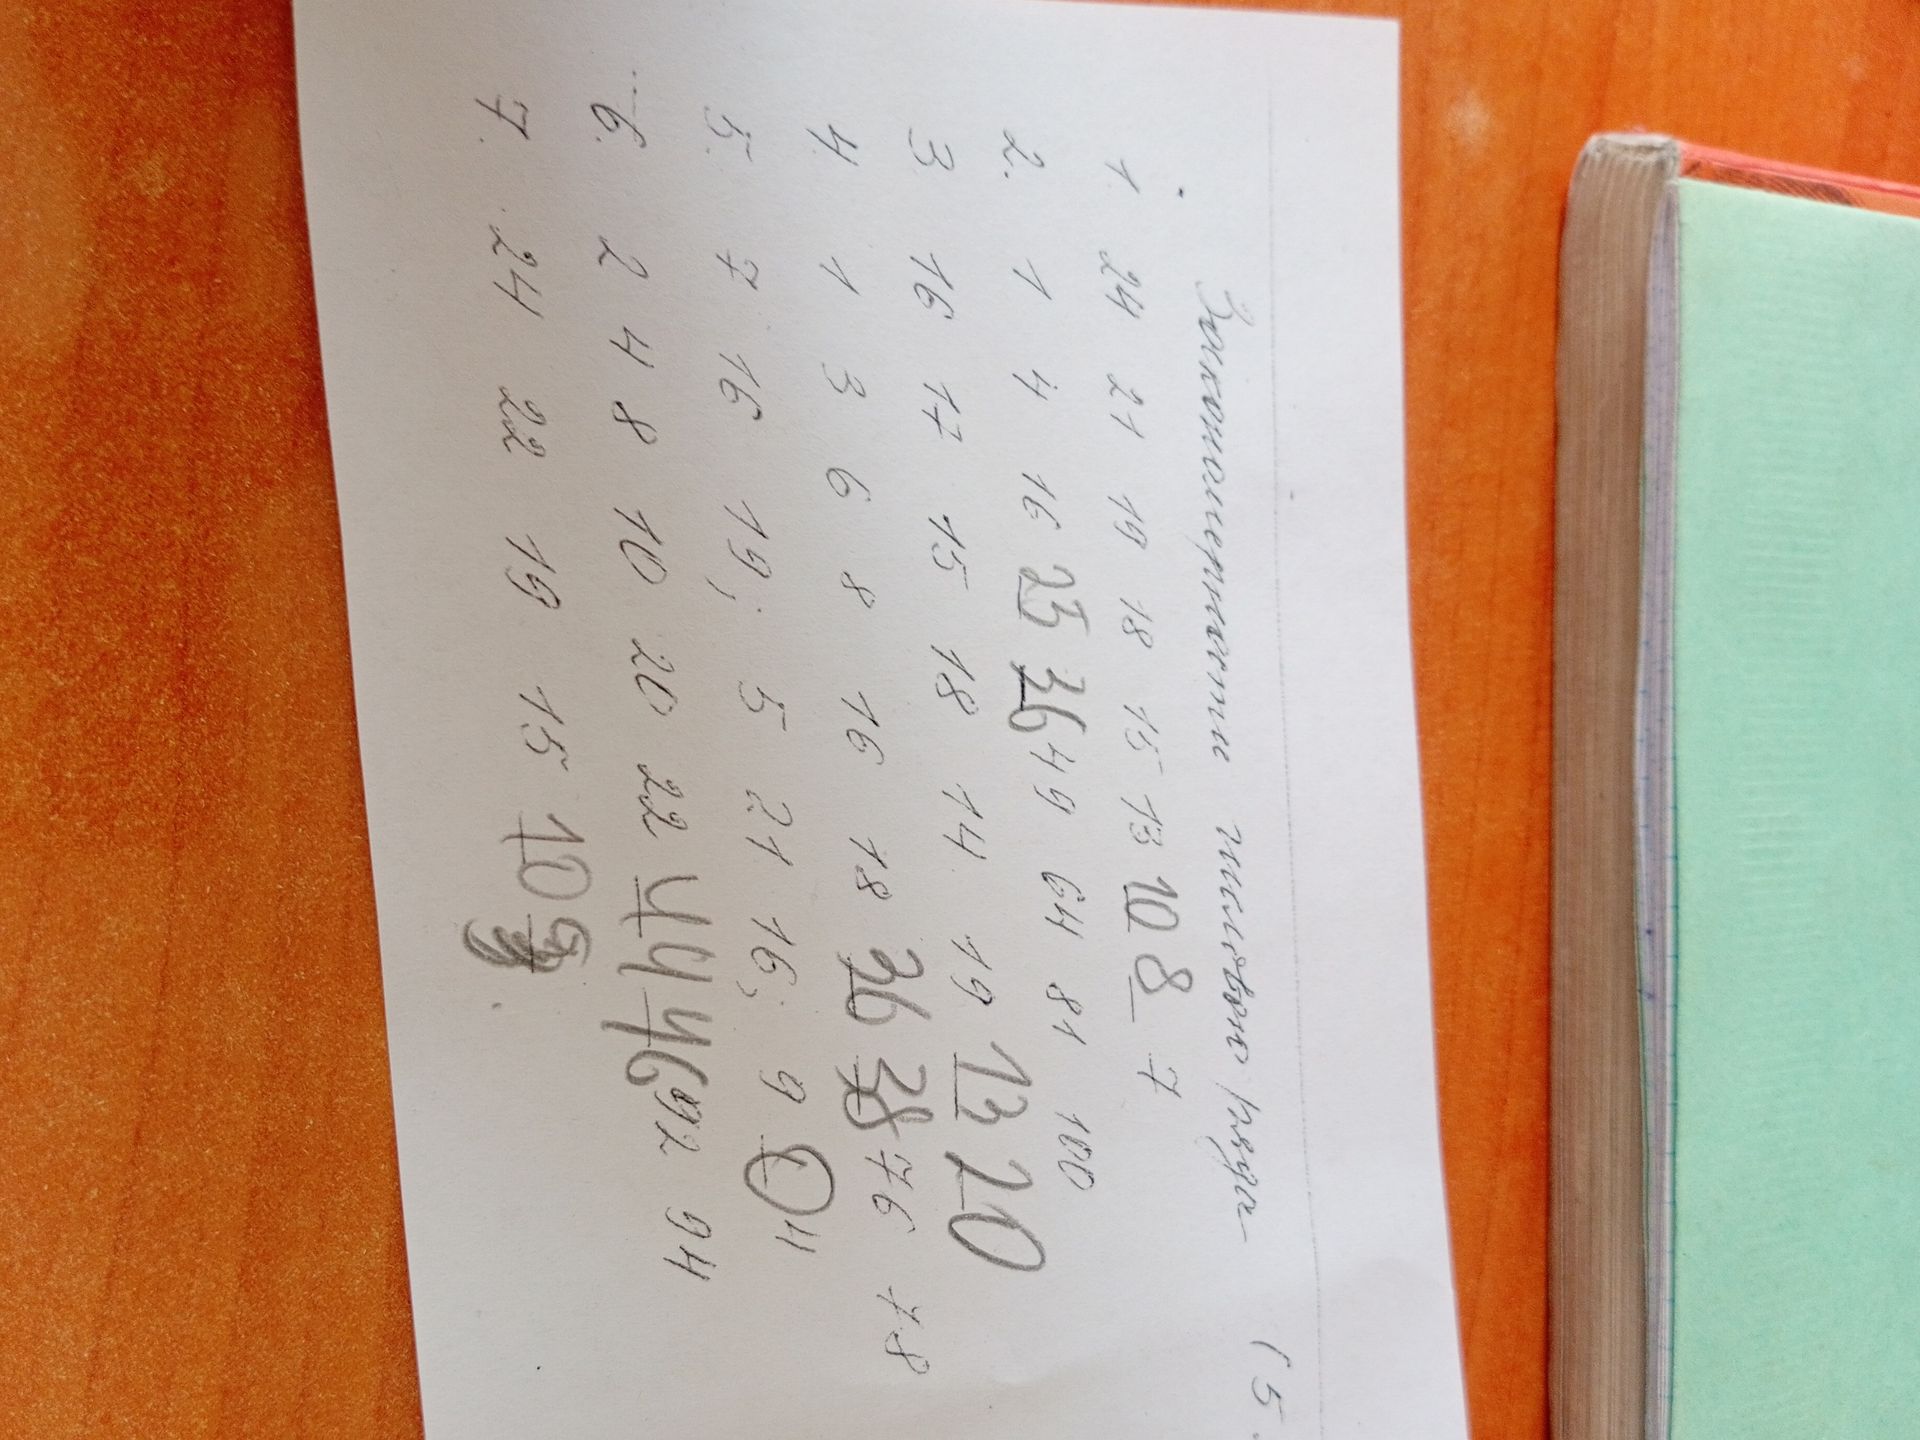 Закономерности числового ряда (5.
1. 24 21 19 18 15 13 10 8 7
2. 1 4 16 25 36 49 64 81 100
3 16 17 15 18 14 19 13 20
4. 1 3 6 8 16 18 36 38 76 78
5. 7 16 19; 5 21 16; 9 4
6. 2 4 8 10 20 22 44 46 92 94
7. 24 22 19 15 10